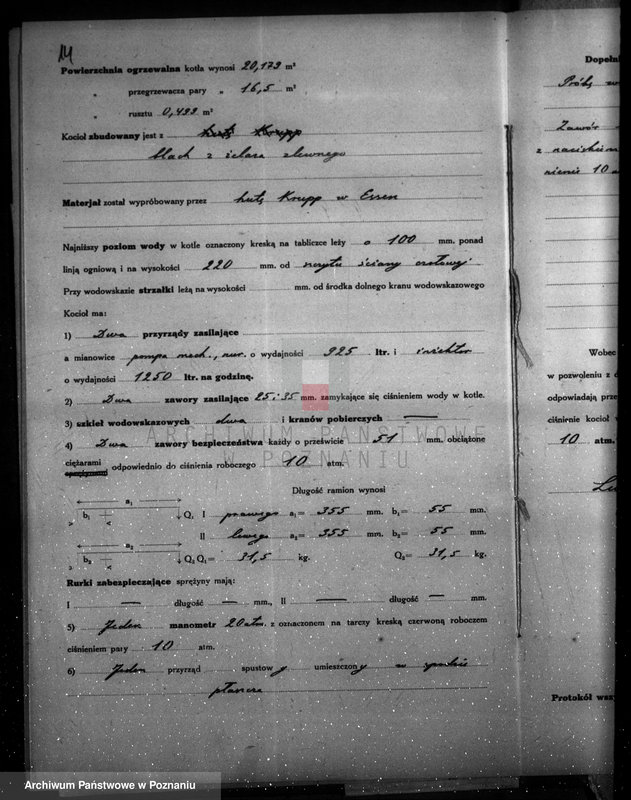 14
Powierzchnia ogrzewalna kotła wynosi 20,179 m²
„ przegrzewacza pary „ 16,5 m²
„ rusztu 0,499 m²
Kocioł zbudowany jest z hutę Krupp
blach z żelaza zlewnego
Materjał został wypróbowany przez hutę Krupp w Essen
Najniższy poziom wody w kotle oznaczony kreską na tabliczce leży o 100 mm. ponad
linją ogniową i na wysokości 220 mm. od szczytu ściany czołowej
Przy wodowskazie strzałki leżą na wysokości mm. od środka dolnego kranu wodowskazowego
Kocioł ma:
1) Dwa przyrządy zasilające
a mianowicie pompa mech., nur. o wydajności 925 ltr. i inżektor
o wydajności 1250 ltr. na godzinę.
2) Dwa zawory zasilające 25 i 35 mm. zamykające się ciśnieniem wody w kotle.
3) szkieł wodowskazowych dwa i kranów pobierczych —
4) Dwa zawory bezpieczeństwa każdy o prześwicie 51 mm. obciążone
ciężarami
odpowiednio do ciśnienia roboczego 10 atm.
ARCHIWUM PAŃSTWOWE
W POZNANIU
Długość ramion wynosi
a₁
b₁ Q₁ I prawego a₁= 355 mm. b₁= 55 mm.
II lewego a₂= 355 mm. b₂= 55 mm.
a₂
b₂ Q₂ Q₁= 31,5 kg. Q₂= 31,5 kg.
Rurki zabezpieczające sprężyny mają:
I — długość — mm., II — długość — mm.
5) Jeden manometr 20 atm. z oznaczonem na tarczy kreską czerwoną roboczem
ciśnieniem pary 10 atm.
6) Jeden przyrząd spustowy umieszczony w spodzie
płaszcza
Dopełni
Próbę
Zawór
z
10
Wobec
w pozwoleniu z d
odpowiadają prze
ciśnienie kocioł w
10 atm.
Protokół wsz
Archiwum Państwowe w Poznaniu